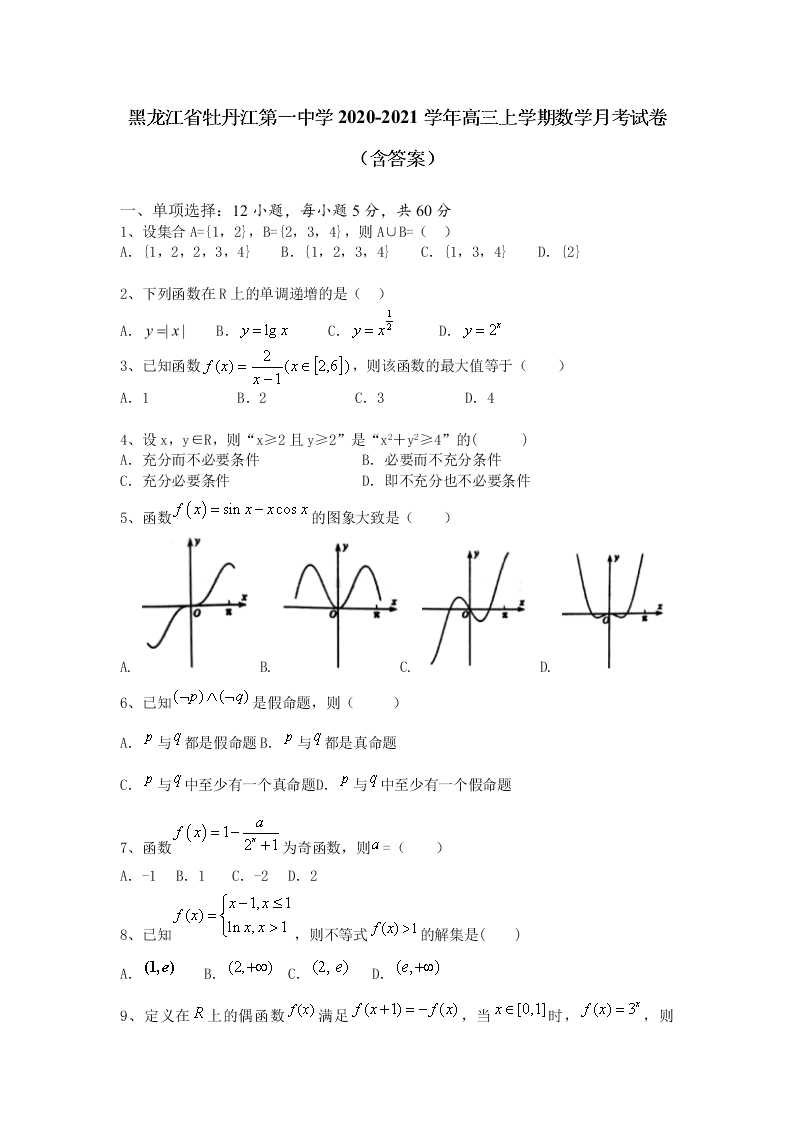 黑龙江省牡丹江第一中学 2020-2021 学年高三上学期数学月考试卷
（含答案）
一、单项选择：12 小题，每小题 5 分，共 60 分
1、设集合 A={1，2}，B={2，3，4}，则 A∪B=（ ）
A．{1，2，2，3，4} B．{1，2，3，4} C．{1，3，4} D．{2}
2、下列函数在 R 上的单调递增的是（ ）
A． y=|x| B． y=lg x C． y=x^{1/2} D． y=2^x
3、已知函数 f(x)=2/(x-1) (x∈[2,6])，则该函数的最大值等于（ ）
A．1 B．2 C．3 D．4
4、设 x，y∈R，则“x≥2 且 y≥2”是“x²＋y²≥4”的( )
A．充分而不必要条件 B．必要而不充分条件
C．充分必要条件 D．即不充分也不必要条件
5、函数 f(x)=sin x-x cos x 的图象大致是（ ）
y y y y
O π x O π x O π x O π x
A. B. C. D.
6、已知(¬p)∧(¬q)是假命题，则（ ）
A．p 与 q 都是假命题 B．p 与 q 都是真命题
C．p 与 q 中至少有一个真命题 D．p 与 q 中至少有一个假命题
7、函数 f(x)=1-a/(2^x+1) 为奇函数，则 a =（ ）
A．-1 B．1 C．-2 D．2
8、已知 f(x)={x-1, x≤1 ln x, x>1 ，则不等式 f(x)>1 的解集是( )
A．(1,e) B．(2,+∞) C．(2, e) D．(e,+∞)
9、定义在 R 上的偶函数 f(x) 满足 f(x+1)=-f(x)，当 x∈[0,1] 时，f(x)=3^x，则